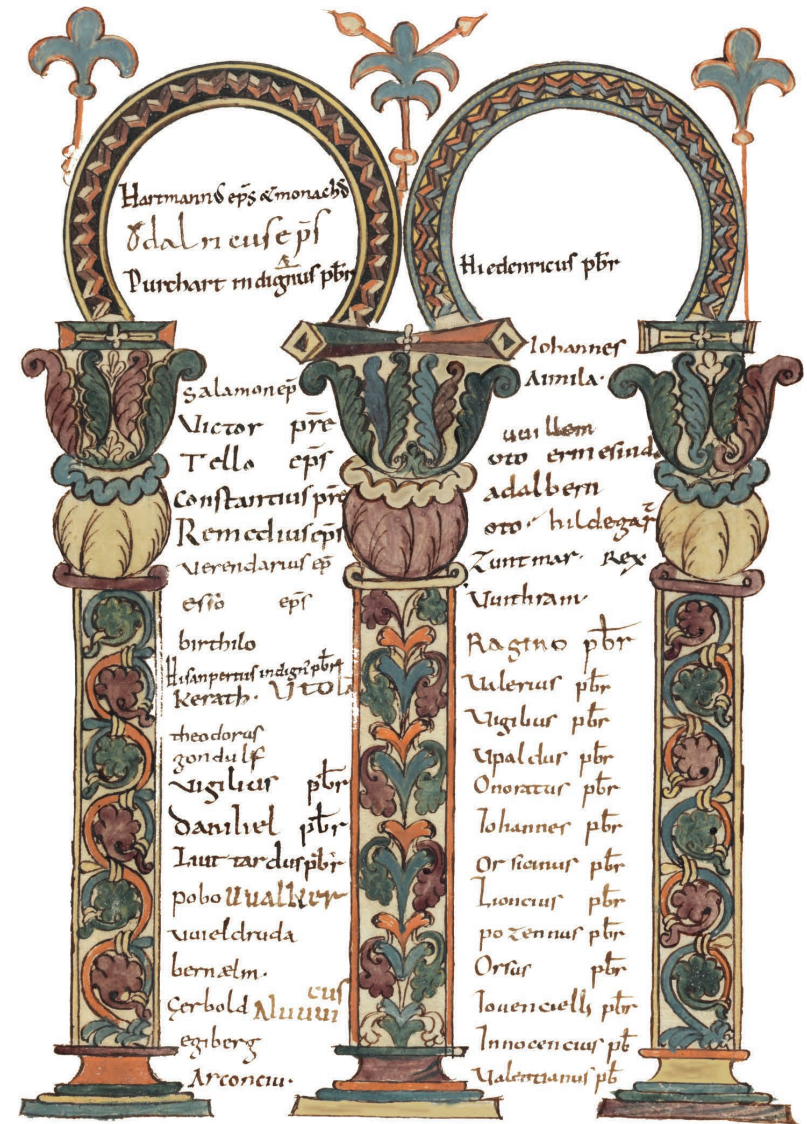 Hartmann⁹ ep̄s & monach⁹
Ŏdalricus ep̄s
Purchart indignus pbr̄
Salamon ep̄
Victor prē
Tello ep̄s
constantius prē
Remedius ep̄s
Verendarius ep̄
essio ep̄s
birthilo
kerath· Vtolā
theodorus
gondulf
Vigilius pbr̄
danihel pbr̄
Liuttardus pbr̄
pobo Uualtker
Uuieldruda
bernælm·
Gerbold
egiberg
Arconciu·
Hiedenricus pbr̄
Iohannes
Aimila·
uuillem
oto ermesinda
adalbern
oto· hildegar̄
Zuntmar· Rex
Vuithram·
Ragino pbr̄
Valerius pbr̄
Vigilius pbr̄
Vpaldus pbr̄
Onoratus pbr̄
Iohannes pbr̄
Orsicinus pbr̄
Lioncius pbr̄
pozennus pbr̄
Orsus pbr̄
Iouencielli pbr̄
Innocencius pb̄
Valentianus pb̄